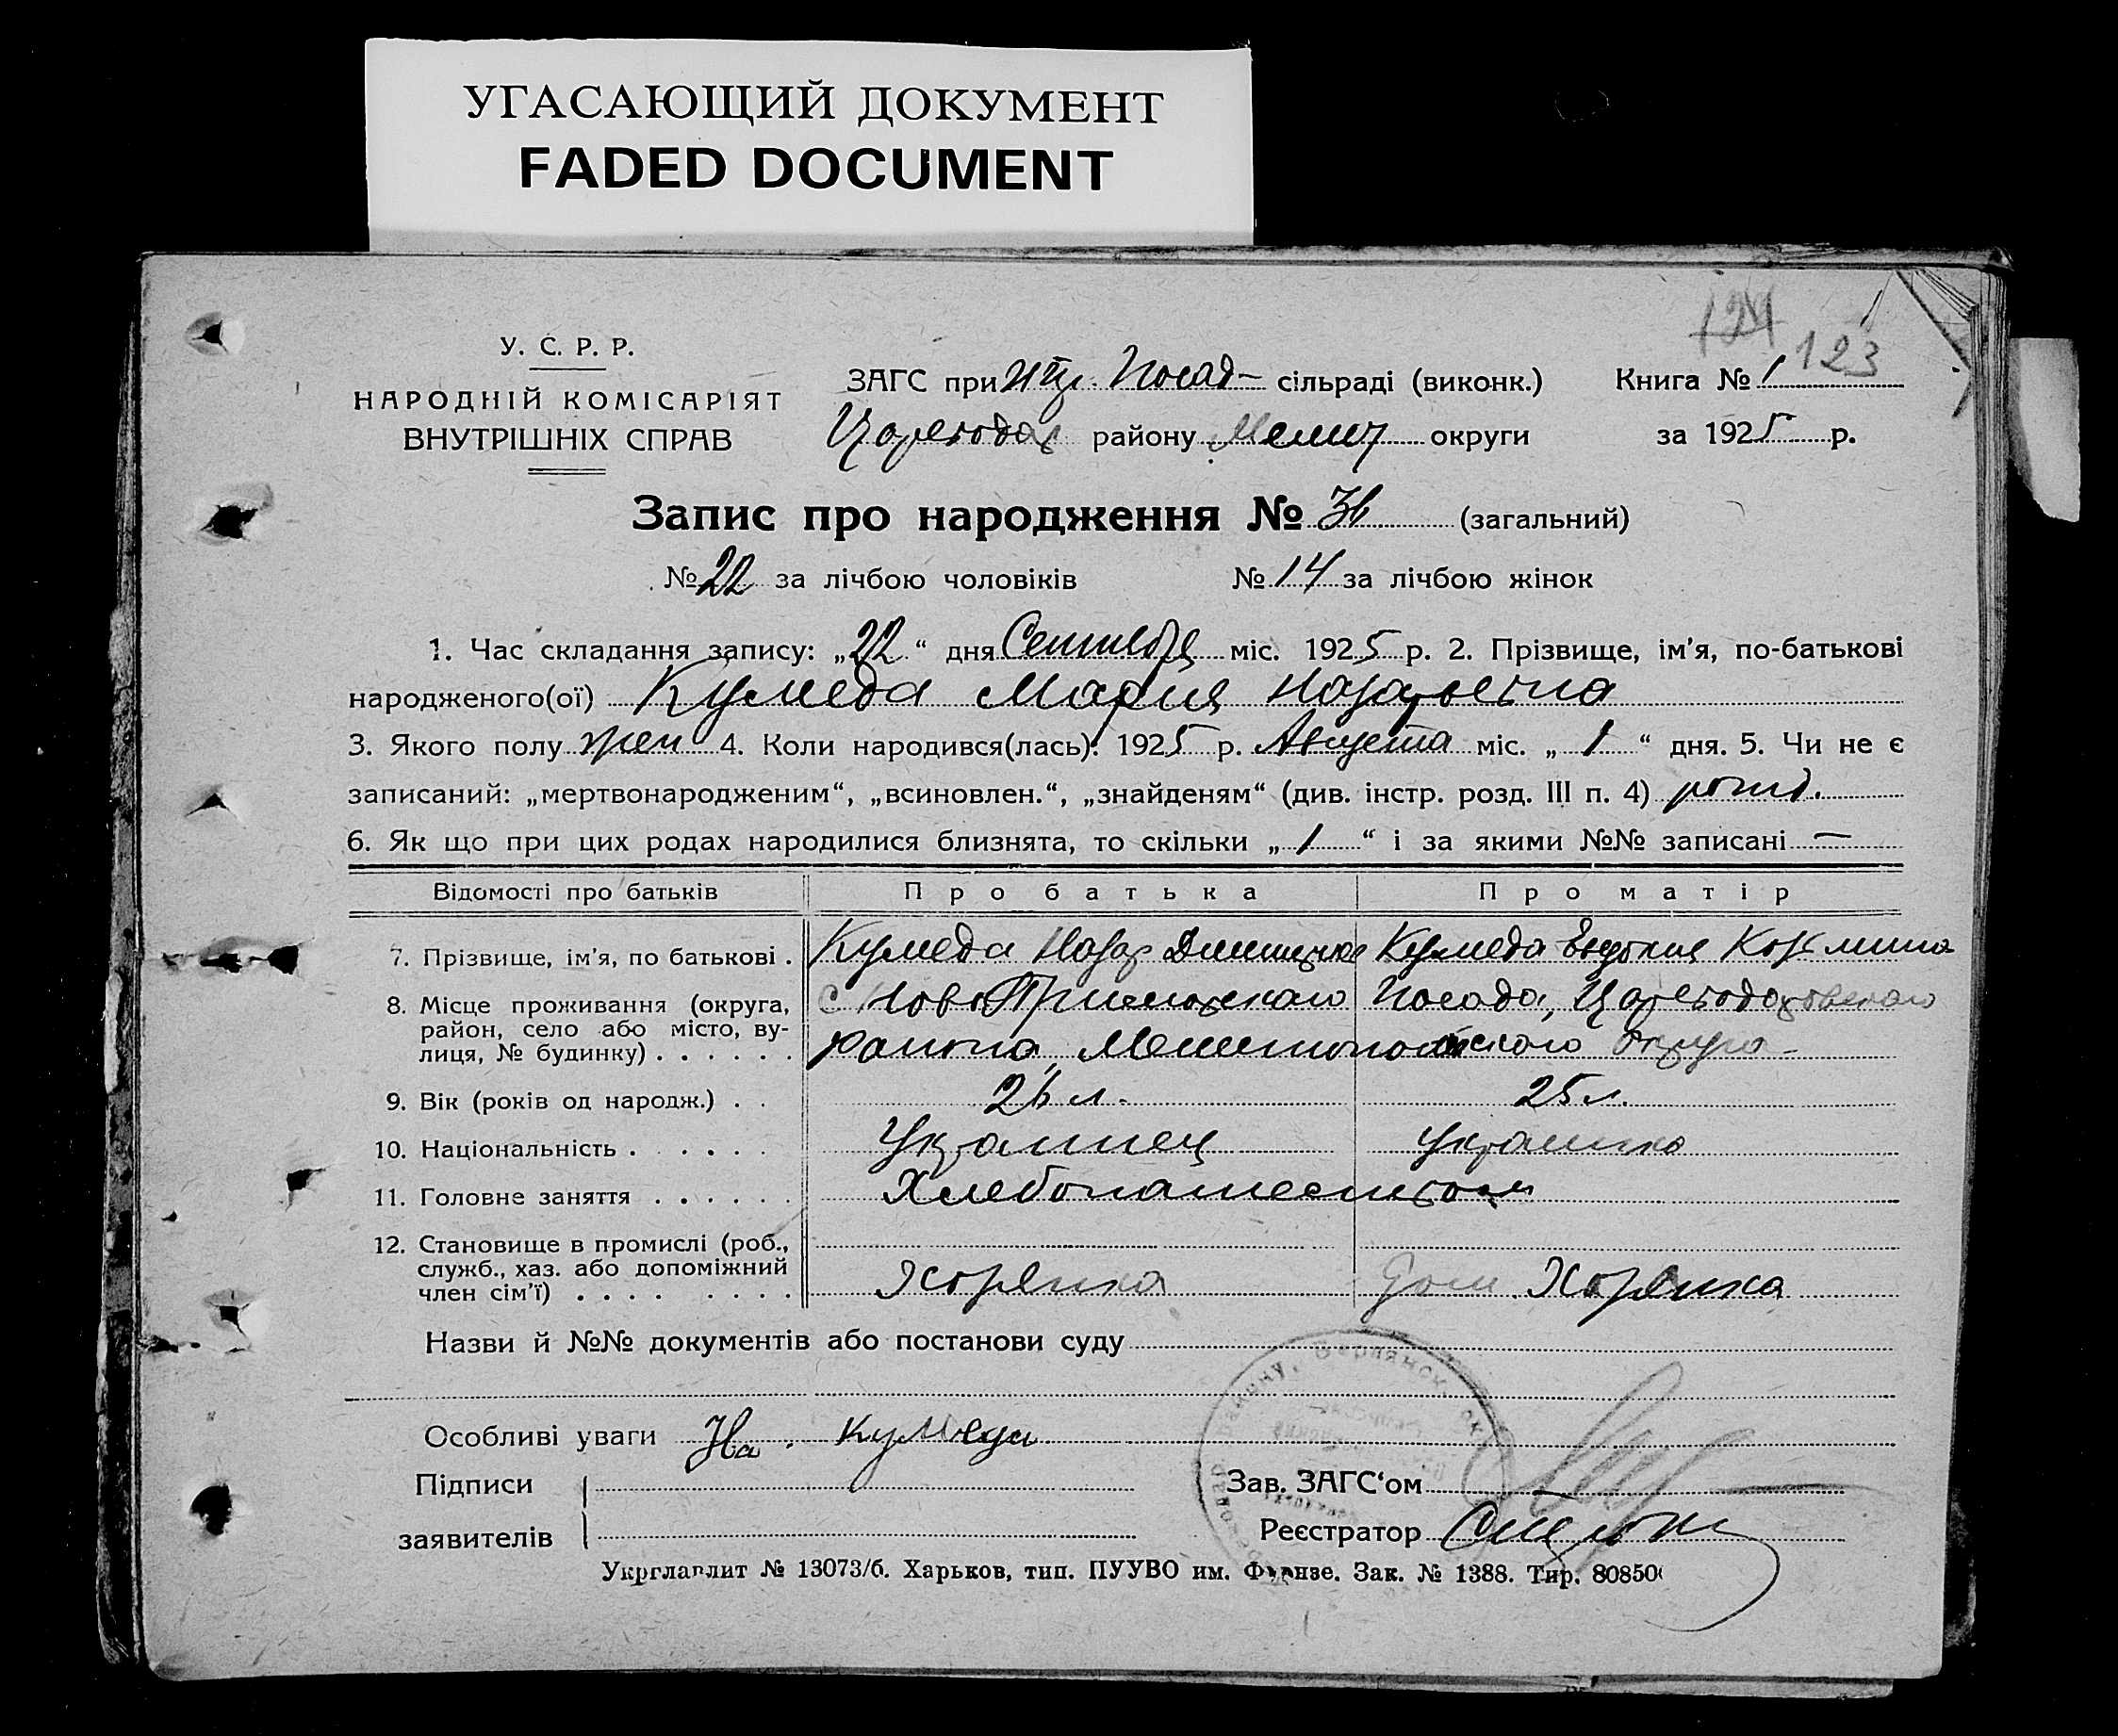 УГАСАЮЩИЙ ДОКУМЕНТ
FADED DOCUMENT
124
123
У. С. Р. Р.
НАРОДНІЙ КОМІСАРІЯТ
ВНУТРІШНІХ СПРАВ
ЗАГС при Нпр. Посад- сільраді (виконк.)
Книга № 1
Царевода району Мелит округи
за 1925 р.
Запис про народження № 36 (загальний)
№ 22 за лічбою чоловіків № 14 за лічбою жінок
1. Час складання запису: „22“ дня Сентября міс. 1925 р. 2. Прізвище, ім'я, по-батькові
народженого(ої) Кумеда Мария Назарьевна
3. Якого полу жен 4. Коли народився(лась): 1925 р. Августа міс. „1“ дня. 5. Чи не є
записаний: „мертвонародженим“, „всиновлен.“, „знайденям“ (див. інстр. розд. III п. 4) рожд.
6. Як що при цих родах народилися близнята, то скільки „1“ і за якими №№ записані —
Відомості про батьків Про батька Про матір
7. Прізвище, ім'я, по батькові . Кумеда Назар Кумеда Евдокия Козмина
8. Місце проживання (округа, район, село або місто, вулиця, № будинку) . . . . . .
с Ново Посада,
района, Мелитопольского округа-
9. Вік (років од народж.) . . 26 л. 25 л.
10. Національність . . . . . . Украинец Украинка
11. Головне заняття . . . . . . Хлебопашеством
12. Становище в промислі (роб., служб., хаз. або допоміжний член сім'ї) . . . . . . . .
Хозяйка
Назви й №№ документів або постанови суду
Особливі уваги На. Кумеда
Підписи
заявителів
Зав. ЗАГС'ом
Реєстратор
Укрглавлит № 13073/б. Харьков, тип. ПУУВО им. Фрунзе. Зак. № 1388. Тир. 80850